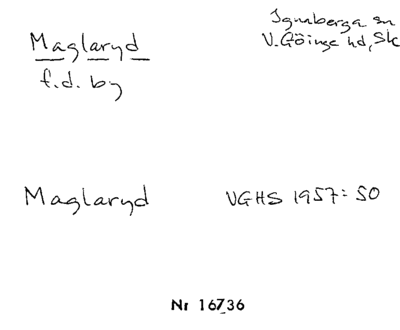 Maglaryd
f.d. by
Ignaberga sn
V. Göinge hd, Sk
Maglaryd
VGHS 1957: 50
Nr 16736